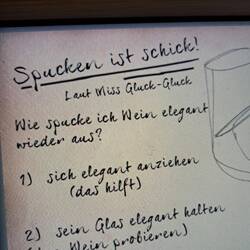 Spucken ist schick!
Laut Miss Gluck-Gluck
Wie spucke ich Wein elegant
wieder aus?
1) sich elegant anziehen
(das hilft)
2) sein Glas elegant halten
Wein probieren)